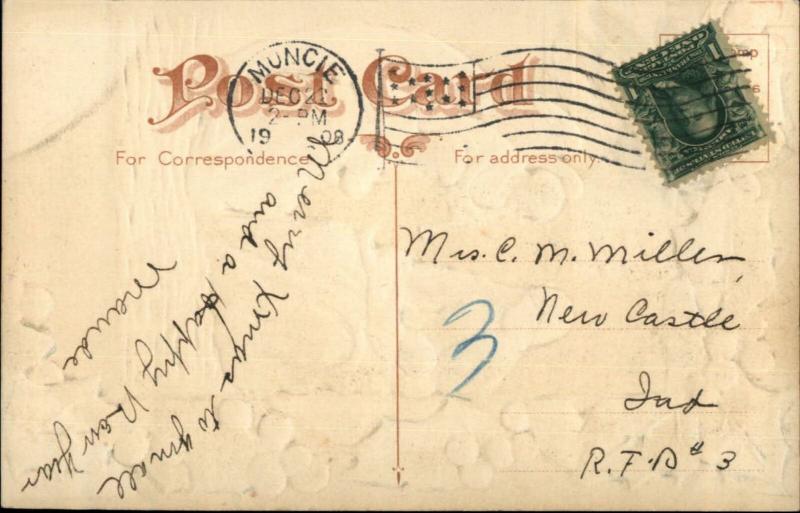 Post Card
MUNCIE
DEC 21
2-PM
19 08
For Correspondence
For address only.
Merry Xmas to you all
and a Happy New Year
Maude
Mrs. C. M. Miller,
New Castle
Ind
R.F.D # 3
3